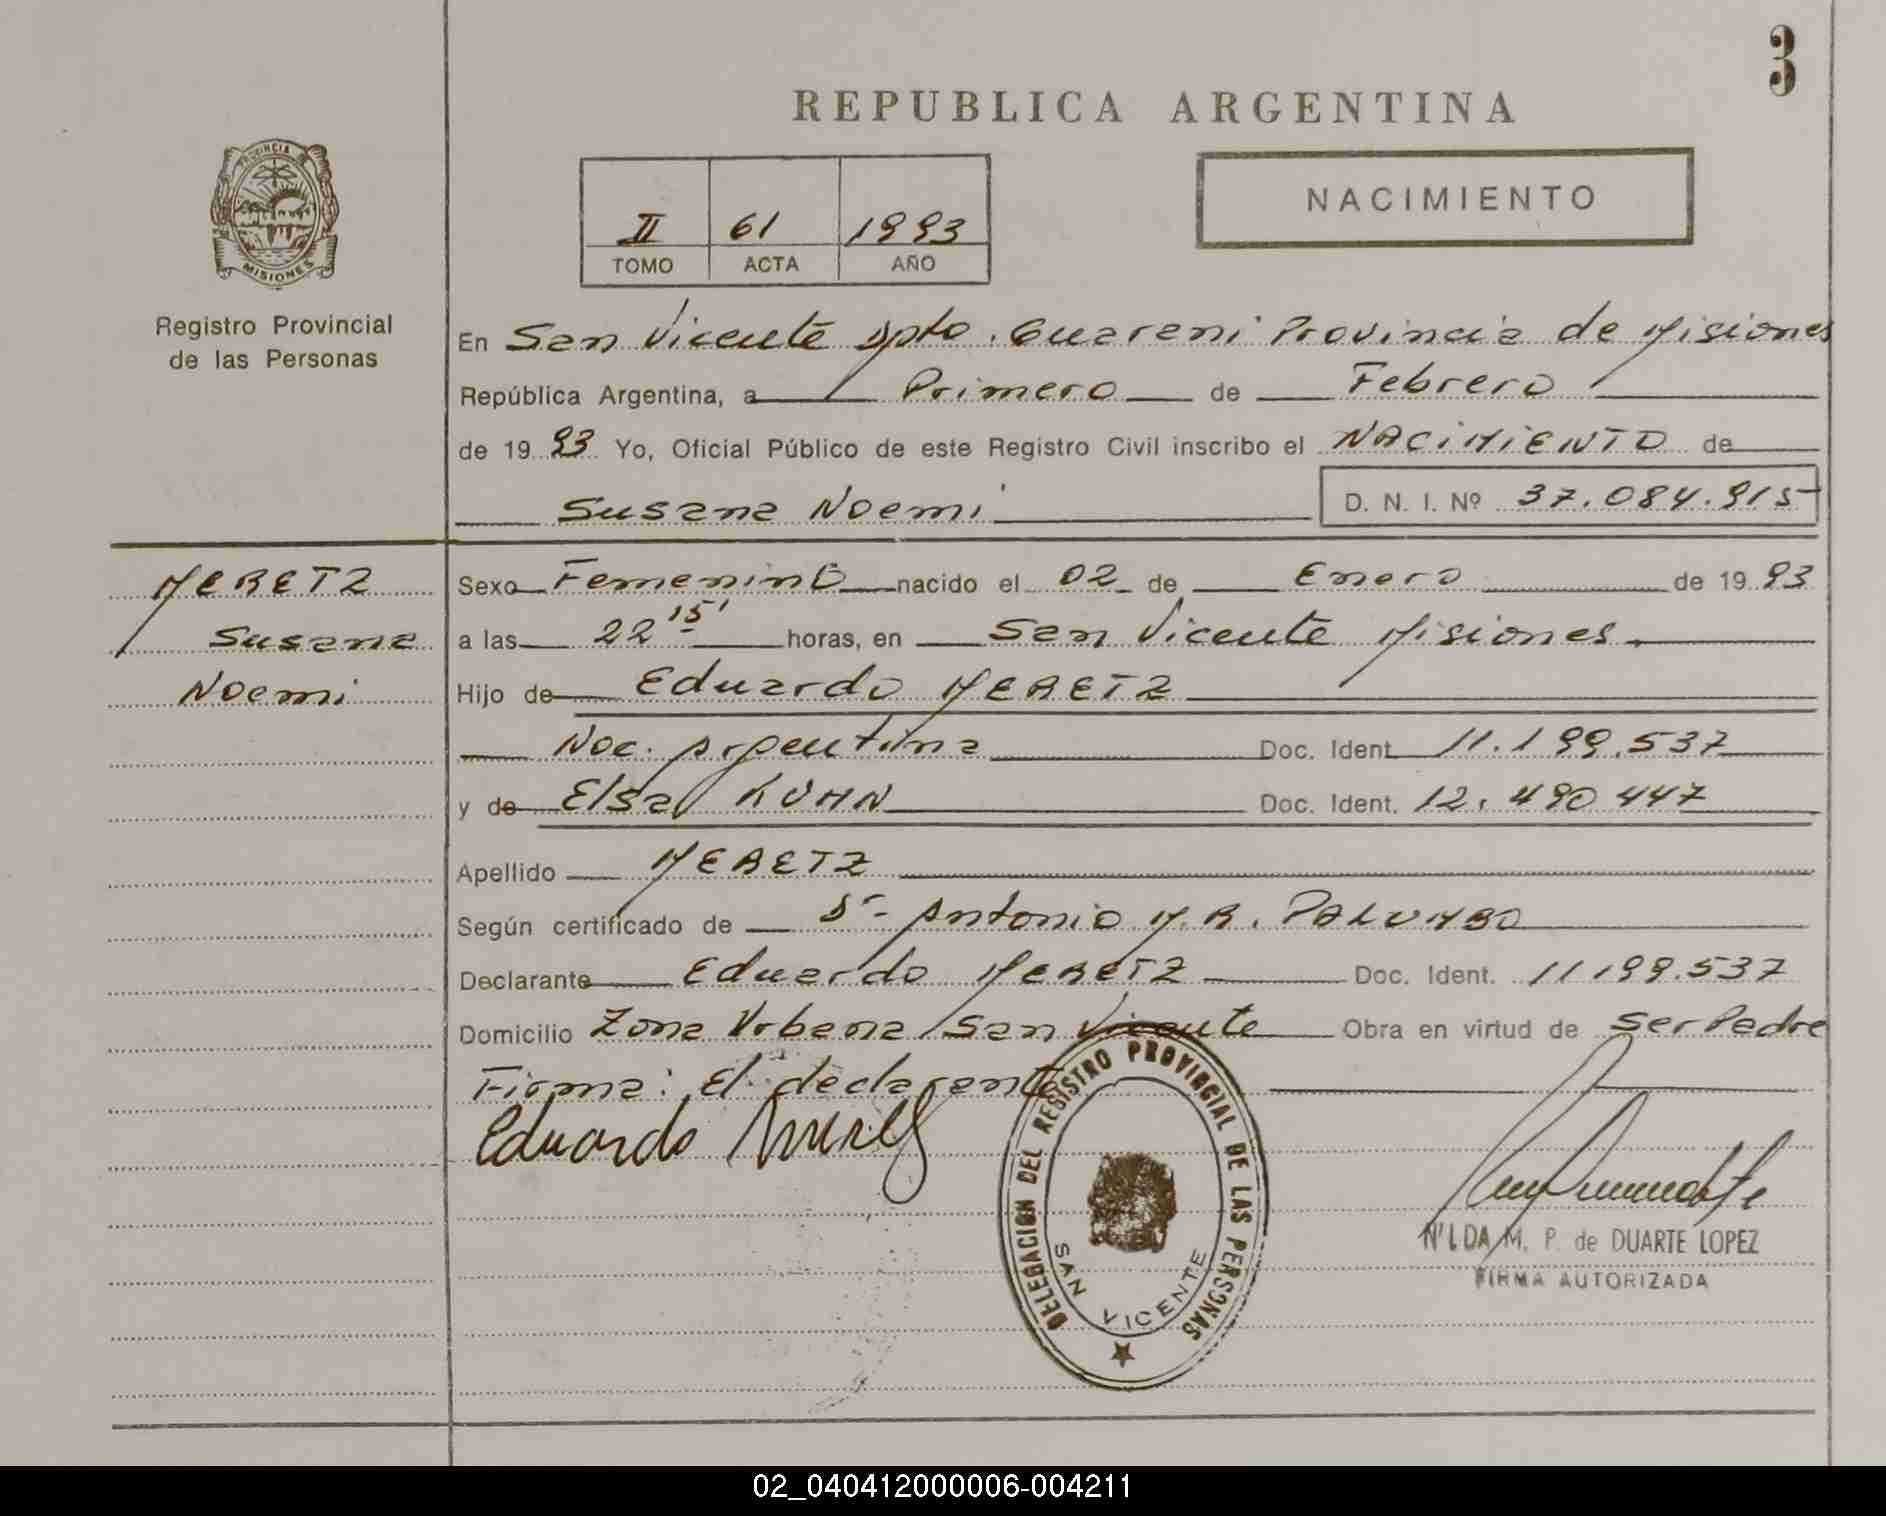 3
REPUBLICA ARGENTINA
PROVINCIA DE
MISIONES
Registro Provincial
de las Personas
II 61 1993
TOMO ACTA AÑO
NACIMIENTO
En San Vicente Dpto. Guarani Provincia de Misiones
República Argentina, a Primero de Febrero
de 19 93 Yo, Oficial Público de este Registro Civil inscribo el NACIMIENTO de
Susana Noemi D. N. I. Nº 37.084.915
MERETZ
Susana
Noemi
Sexo Femenino nacido el 02 de Enero de 19 93
a las 22 15' horas, en San Vicente Misiones
Hijo de Eduardo MERETZ
Nac. Argentina Doc. Ident. 11.199.537
y de Elsa KUHN Doc. Ident. 12.490 447
Apellido MERETZ
Según certificado de Dr. Antonio M.R. PALUMBO
Declarante Eduardo MERETZ Doc. Ident. 11199.537
Domicilio Zona Urbana San Vicente Obra en virtud de Ser Padre
Firma: El declarante
Eduardo
DELEGACION DEL REGISTRO PROVINCIAL DE LAS PERSONAS
SAN VICENTE
NILDA M. P. de DUARTE LOPEZ
FIRMA AUTORIZADA
02_040412000006-004211